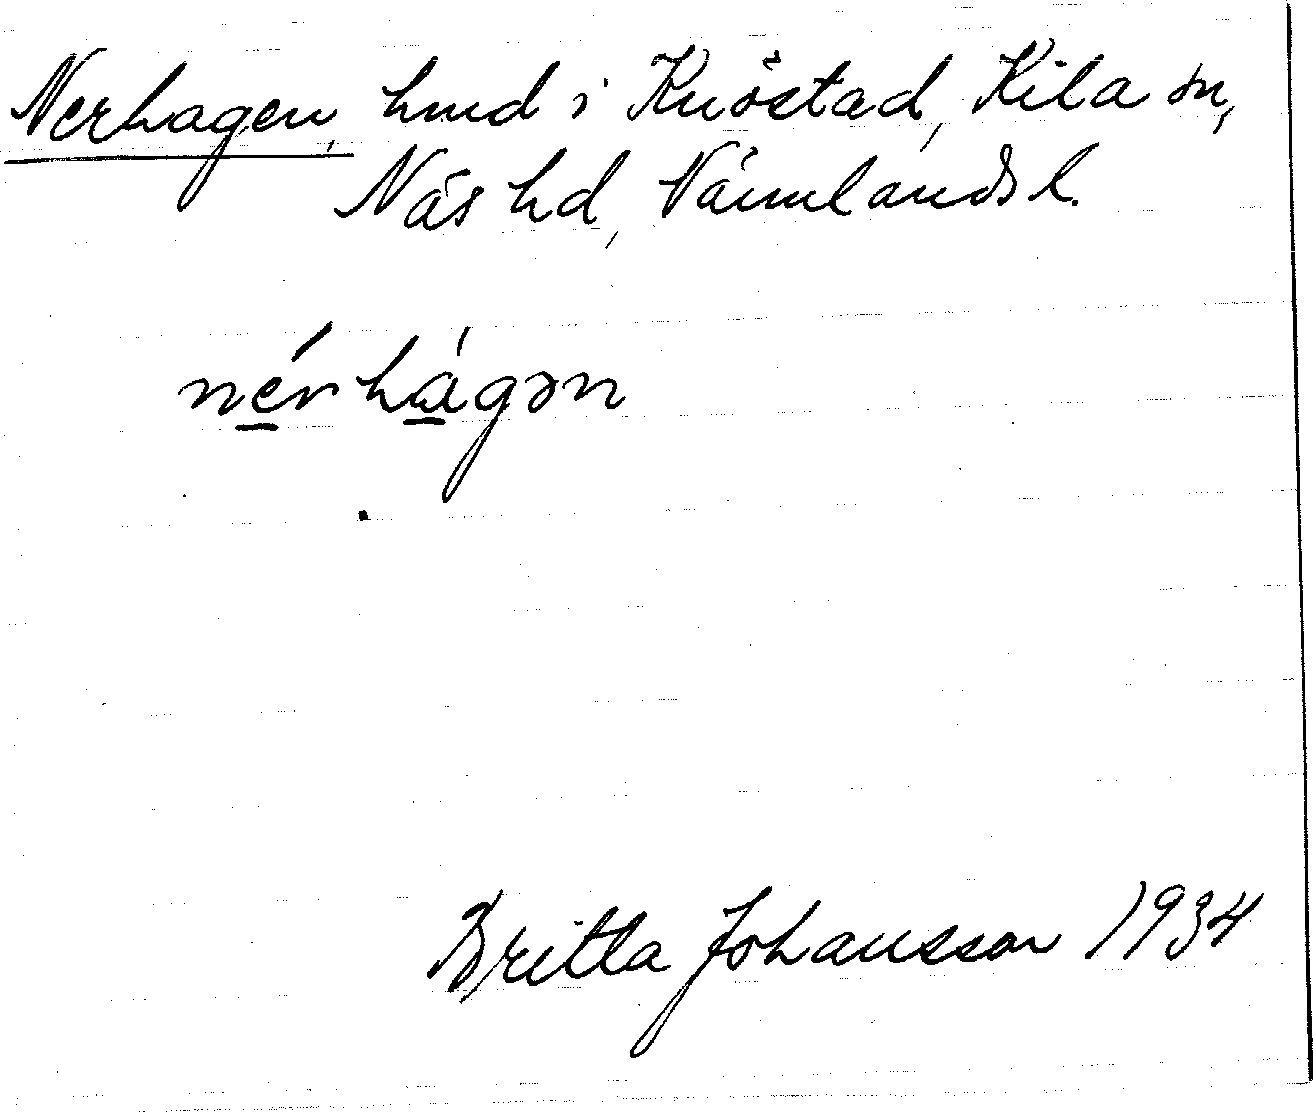 Nerhagen, hmd i Knöstad, Kila sn,
Näs hd, Värmlands l.
nérhágən
Britta Johansson 1934